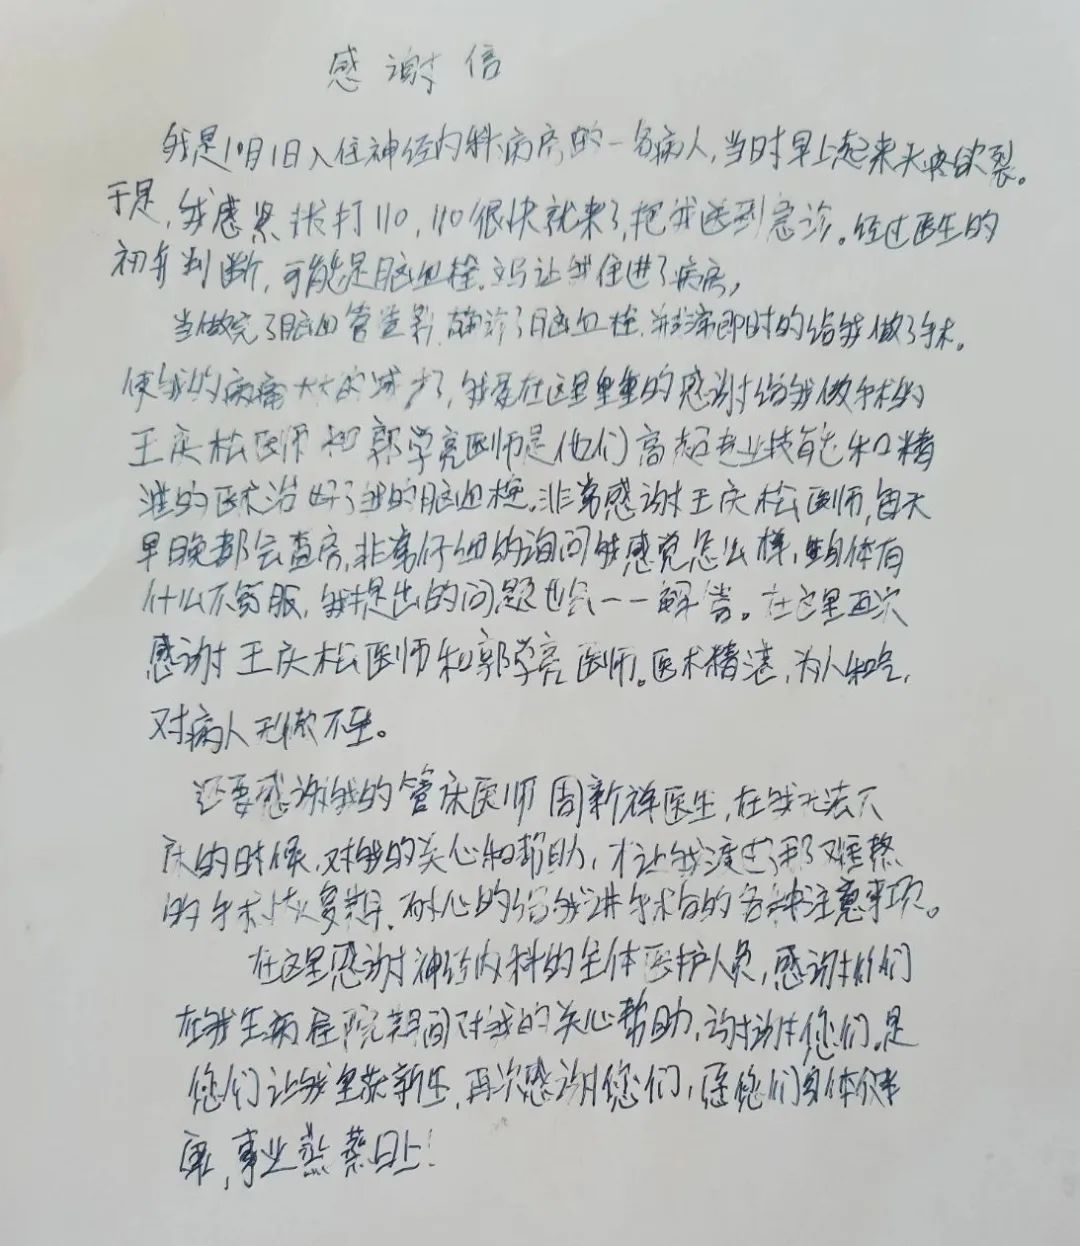 感谢信
我是10月1日入住神经内科病房的一名病人,当时早上起来头疼欲裂。
于是,我感紧拔打110,110很快就来了,把我送到急诊。经过医生的
初步判断,可能是脑血栓.让我住进了病房,
当做完了脑血管造影,确诊了脑血栓.非常即时的给我做了手术。
使我的病痛大大的减少了,我要在这里重重的感谢给我做手术的
王庆松医师和郭学亮医师是他们高超专业技能和精
准的医术治好了我的脑血栓。非常感谢王庆松医师,每天
早晚都会查房,非常仔细的询问我感觉怎么样,身体有
什么不舒服,我提出的问题也会一一解答。在这里再次
感谢王庆松医师和郭学亮医师。医术精湛,为人和气,
对病人无微不至。
还要感谢我的管床医师周新祥医生,在我无法下
床的时候,对我的关心和帮助,才让我渡过了那艰难
的手术恢复期,耐心的给我讲手术后的各种注意事项。
在这里感谢神经内科的全体医护人员,感谢你们
在我生病住院期间对我的关心帮助,谢谢您们。是
您们让我重获新生,再次感谢您们,愿您们身体健
康,事业蒸蒸日上!